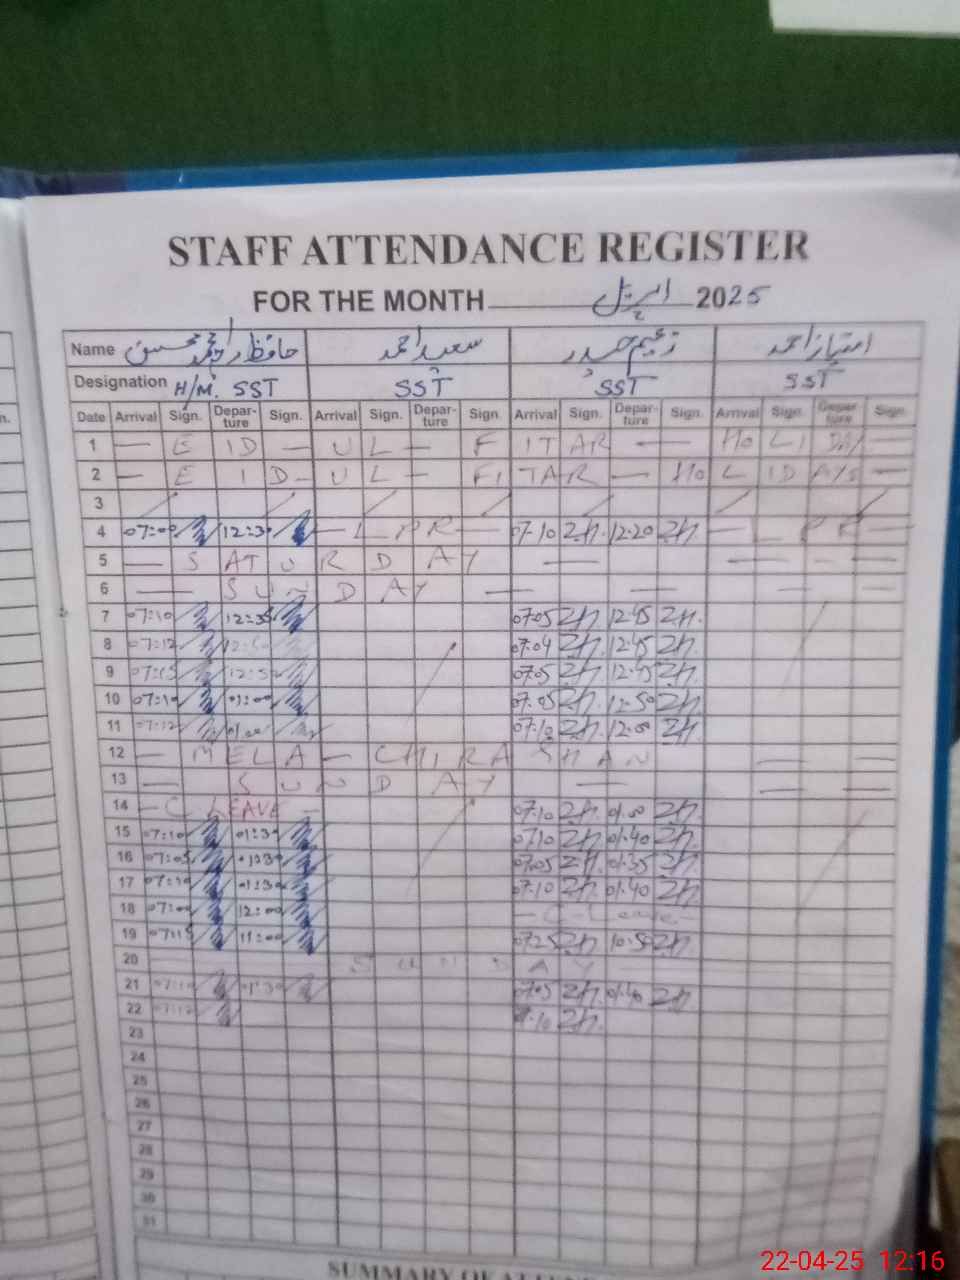 STAFF ATTENDANCE REGISTER
FOR THE MONTH اپریل 2025
Name حافظ محسن سعید احمد زعیم حیدر امتیاز احمد
Designation H/M. SST SST SST SST
Date Arrival Sign. Depar-ture Sign. Arrival Sign. Depar-ture Sign. Arrival Sign. Depar-ture Sign. Arrival Sign. Depar-ture Sign.
1 — EID — UL — FITAR — HOLIDAY —
2 — EID — UL — FITAR — HOLIDAYS —
3
4 07:00 12:30 — LPR — 07.10 12.20 — LPR
5 — SATURDAY — — —
6 — SUNDAY — — — —
7 07:10 12:35 07.05 12.45
8 07:12 07.04 12.45
9 07:15 12:50 07.05 12.45
10 07:10 01:00 07.05 12.50
11 07:12 01:00 07.10 12.00
12 — MELA — CHIRAGHAN — —
13 — SUNDAY — — —
14 — C LEAVE — 07.10 01.00
15 07:10 01:30 07.10 01.40
16 07:05 01:30 07.05 01.35
17 07:10 01:30 07.10 01.40
18 07:00 12:00 — C-Leave —
19 07:15 11:00 07.25 10.50
20 SUNDAY
21 07:10 01:30 07.05 01.40
22 07:12 07.10
23
24
25
26
27
28
29
30
31
SUMMARY OF
22-04-25 12:16